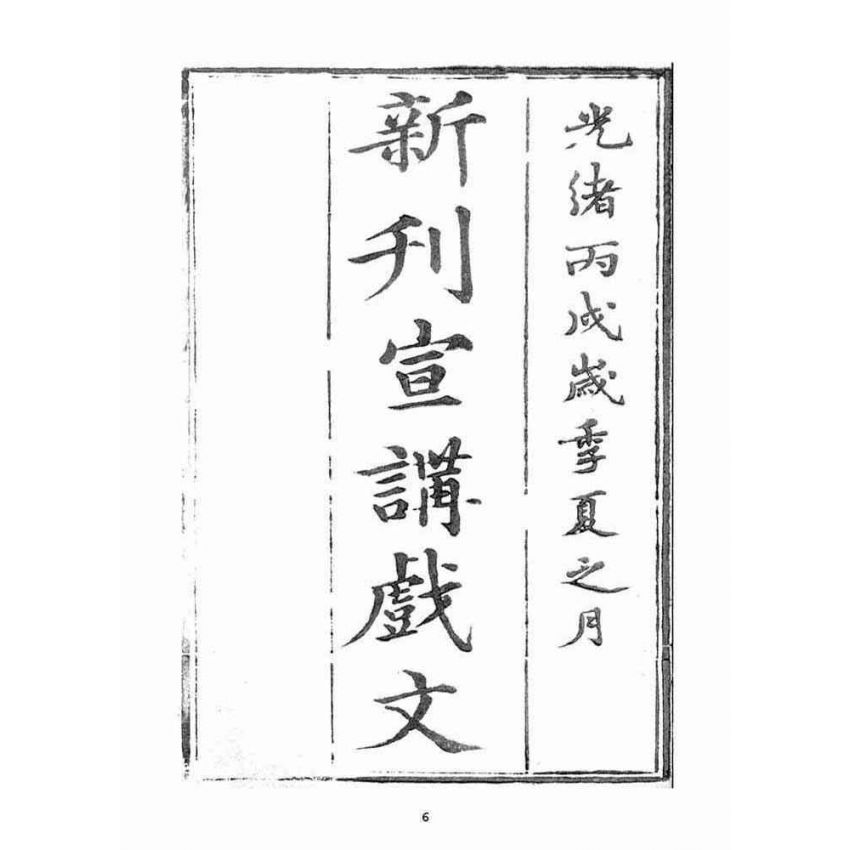 光緒丙戌歲季夏之月
新刊宣講戲文
6